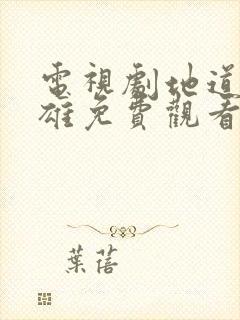 電視劇地道
雄免費觀看
葉蓓